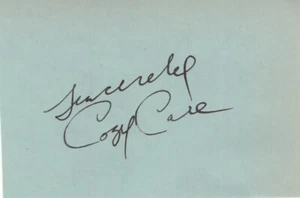 Sincerely
Cozy Cole